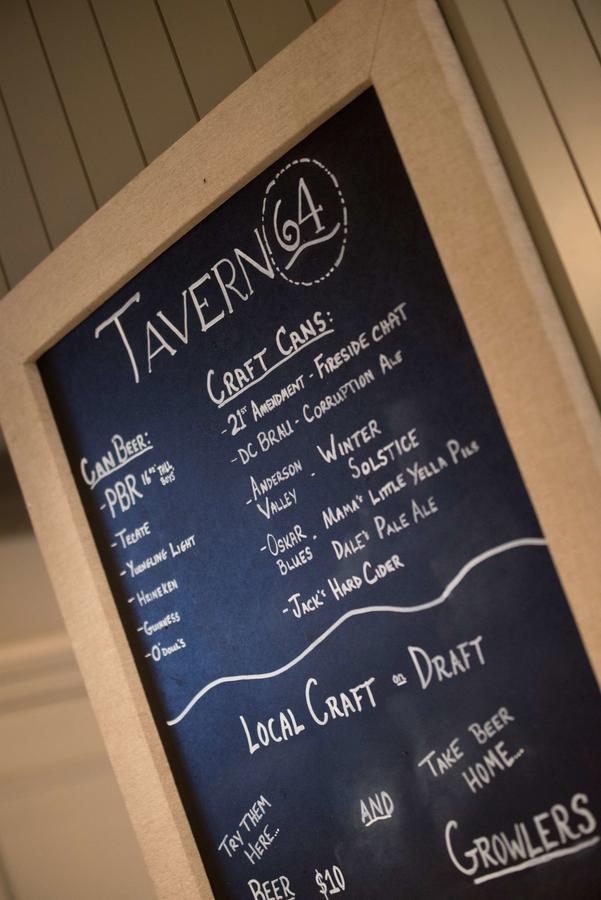 TAVERN 64
CRAFT CANS:
- 21ST AMENDMENT - FIRESIDE CHAT
- DC BRAU - CORRUPTION ALE
- ANDERSON VALLEY - WINTER SOLSTICE
- OSKAR BLUES - MAMA'S LITTLE YELLA PILS
DALE'S PALE ALE
- JACK'S HARD CIDER
CAN BEER:
- PBR 16OZ TALL BOYS
- TECATE
- YUENGLING LIGHT
- HEINEKEN
- GUINNESS
- O'DOUL'S
LOCAL CRAFT on DRAFT
TRY THEM
HERE...
AND
TAKE BEER
HOME...
BEER $10
GROWLERS